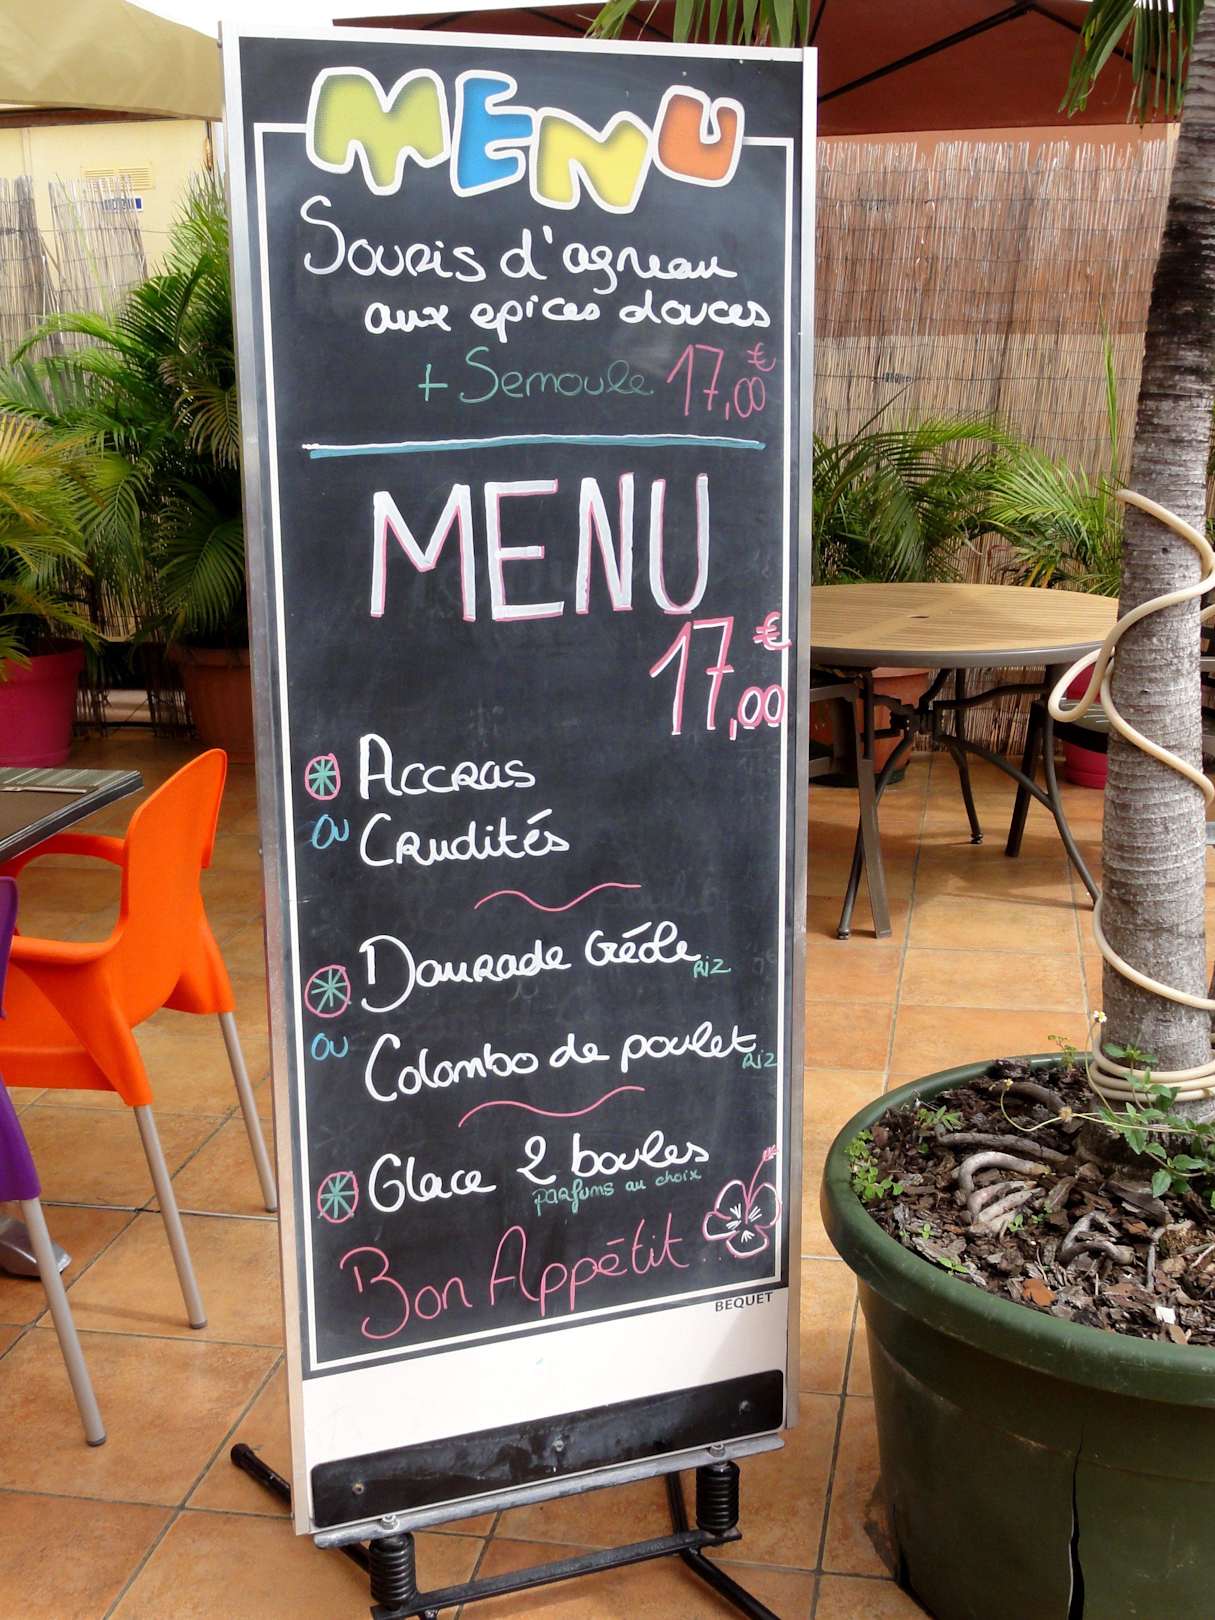 MENU
Souris d'agneau
aux epices douces
+ Semoule 17,00€
MENU
17,00€
Accras
ou Crudités
Daurade Créole RIZ
ou Colombo de poulet RIZ
Glace 2 boules
parfums au choix
Bon Appétit
BEQUET